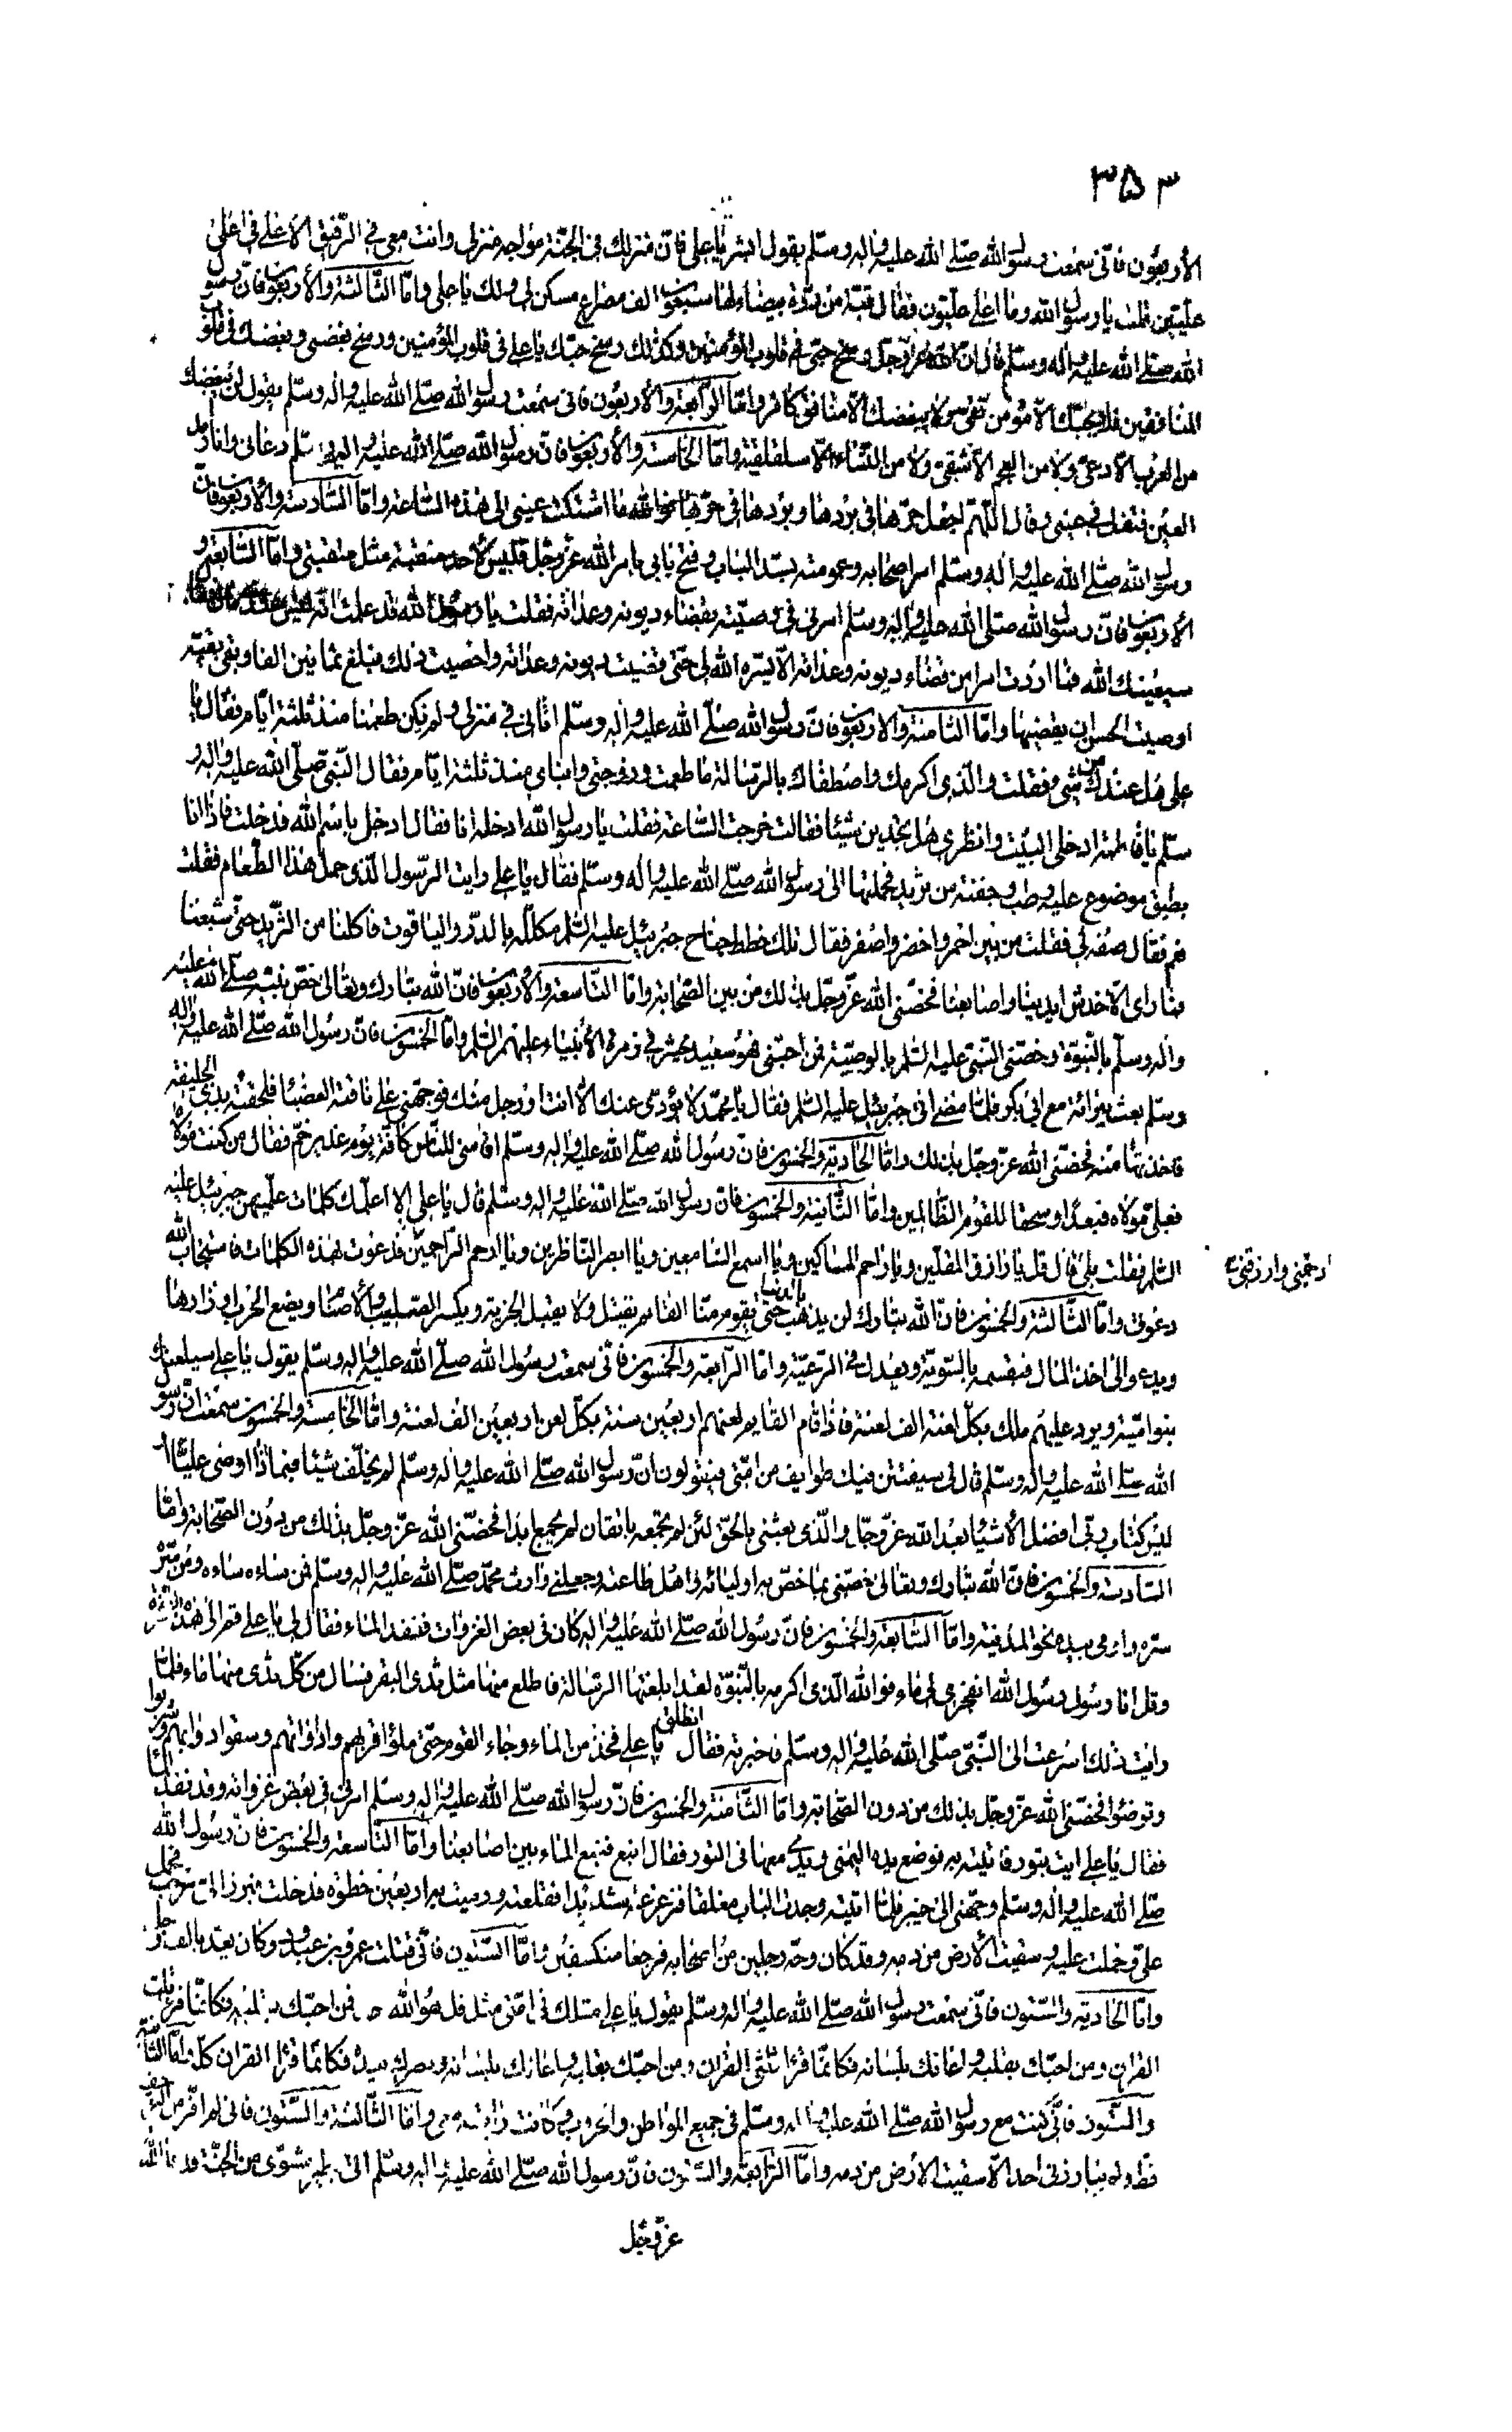 ٣٥٣
الأربعون فانّى سمعت رسول الله صلّى الله عليه واله وسلّم يقول ابشر يا على فانّ منزلك فى الجنّة مواجه منزلى وانت معى فى الرّفيق الأعلى فى اعلى
علّيّين قلت يا رسول الله وما اعلى علّيّون فقال قبّة من درّة بيضاء لها سبعون الف مصراع مسكن لى ولك يا على وامّا الثّالثة والأربعون فانّ رسول
الله صلّى الله عليه واله وسلّم قال انّ الله عزّ وجلّ رسخ حبّى فى قلوب المؤمنين وكذلك رسخ حبّك يا على فى قلوب المؤمنين ورسخ بغضى وبغضك فى قلوب
المنافقين فلا يحبّك الّا مؤمن تقىّ ولا يبغضك الّا منافق كافر وامّا الرّابعة والأربعون فانى سمعت رسول الله صلّى الله عليه واله وسلّم يقول لن يبغضك
من العرب الّا دعىّ ولا من العجم الّا شقىّ ولا من النّساء الّا سلقلقية وامّا الخامسة والأربعون فانّ رسول الله صلّى الله عليه واله وسلّم دعانى وانا رمد
العين فتفل فى عينى وقال اللّهم اجعل حرّها فى بردها وبردها فى حرّها فوالله ما اشتكت عينى الى هذه السّاعة وامّا السّادسة والأربعون فانّ
رسول الله صلّى الله عليه واله وسلّم امر اصحابه وعمومته بسدّ الباب وفتح بابى بامر الله عزّ وجلّ فليس لأحد منقبة مثل منقبتى وامّا السّابعة و
الأربعون فانّ رسول الله صلّى الله عليه واله وسلّم امرنى فى وصيّته بقضاء ديونه وعداته فقلت يا رسول الله قد علمت انّه ليس عندى مال فقال
سيعينك الله فما اردت امرا من قضاء ديونه وعداته الّا يسّره الله لى حتّى قضيت ديونه وعداته واحصيت ذلك فبلغ ثمانين الفا وبقى بقيّة
اوصيت الحسن ان يقضيها وامّا الثّامنة والأربعون فانّ رسول الله صلّى الله عليه واله وسلّم اتانى فى منزلى ولم يكن طعمنا منذ ثلثة ايّام فقال يا
على هل عندك من شىء فقلت والّذى اكرمك واصطفاك بالرّسالة ما طعمت وزوجتى وابناى منذ ثلثة ايّام فقال النّبىّ صلّى الله عليه واله و
سلّم يا فاطمة ادخلى البيت وانظرى هل تجدين شيئا فقالت خرجت السّاعة فقلت يا رسول الله ادخله انا فقال ادخل باسم الله فدخلت فاذا انا
بطبق موضوع عليه رطب وجفنة من ثريد فحملتها الى رسول الله صلّى الله عليه واله وسلّم فقال يا على رايت الرّسول الّذى حمل هذا الطّعام فقلت
نعم فقال صفه لى فقلت من بين احمر واخضر واصفر فقال تلك خطط جناح جبرئيل عليه السّلم مكلّلة بالدّرّ والياقوت فاكلنا من الثّريد حتّى شبعنا
فما راى الّا خدش ايدينا واصابعنا فخصّنى الله عزّ وجلّ بذلك من بين الصّحابة وامّا التّاسعة والأربعون فانّ الله تبارك وتعالى خصّ نبيّه صلّى الله عليه
واله وسلّم بالنّبوّة وخصّنى النّبىّ عليه السّلم بالوصيّة فمن احبّنى فهو سعيد يحشر فى زمرة الأنبياء عليهم السّلم وامّا الخمسون فانّ رسول الله صلّى الله عليه واله
وسلّم بعث ببراءة مع ابى بكر فلمّا مضى اتى جبرئيل عليه السّلم فقال يا محمّد لا يؤدّى عنك الّا انت او رجل منك فوجّهنى على ناقته العضباء فلحقته بذى الحليفة
فاخذتها منه فخصّنى الله عزّ وجلّ بذلك وامّا الحادية والخمسون فانّ رسول الله صلّى الله عليه واله وسلّم اقامنى للنّاس كافّة يوم غدير خمّ فقال من كنت مولاه
فعلىّ مولاه فبعدا وسحقا للقوم الظّالمين وامّا الثّانية والخمسون فانّ رسول الله صلّى الله عليه واله وسلّم قال يا على الا اعلّمك كلمات علّميهن جبرئيل عليه
السّلم فقلت بلى قال قل يا رازق المقلّين ويا راحم المساكين ويا اسمع السّامعين ويا ابصر النّاظرين ويا ارحم الرّاحمين فدعوت بهذه الكلمات فاستجاب الله
ارحمنى وارزقنى
دعوتى وامّا الثّالثة والخمسون فانّ الله تبارك لن يذهب بالدنيا حتّى يقوم منّا القائم يقتل ولا يقبل الجزية ويكسر الصّليب والأصنام ويضع الحرب اوزارها
ويدعو الى اخذ المال فيقسمه بالسّويّة ويعدل فى الرّعيّة وامّا الرّابعة والخمسون فانّى سمعت رسول الله صلّى الله عليه واله وسلّم يقول يا على سيلعنك
بنو اميّة ويرد عليهم ملك بكلّ لعنة الف لعنة فاذا قام القايم لعنهم اربعين سنة بكلّ لعن اربعين الف لعنة وامّا الخامسة والخمسون سمعت انّ رسول
الله صلّى الله عليه واله وسلّم قال لى سيفتتن فيك طوايف من امّتى فيقولون انّ رسول الله صلّى الله عليه واله وسلّم لم يخلّف شيئا فبماذا اوصى عليّا ا
ليس كتاب ربّى افضل الأشياء بعد الله عزّ وجلّ والّذى بعثنى بالحقّ لئن لم تجمعه باتقان لم يجمع ابدا فخصّنى الله عزّ وجلّ بذلك من دون الصّحابة وامّا
السّادسة والخمسون فانّ الله تبارك وتعالى خصّنى بما خصّ به اوليائه واهل طاعته وجعلنى وارث محمّد صلّى الله عليه واله وسلّم فمن ساءه ساءه ومن سرّه
سرّه واومى بيده نحو المدينة وامّا السّابعة والخمسون فانّ رسول الله صلّى الله عليه واله كان فى بعض الغزوات فنفد الماء فقال لى يا على قم الى هذه الصّخرة
وقل انا رسول رسول الله انفجرى لى ماء فوالله الّذى اكرمه بالنّبوّة لقد ابلغتها الرّسالة فاطلع منها مثل ثدى البقر فسال من كلّ ثدى منها ماء فلمّا
رايت ذلك اسرعت الى النّبىّ صلّى الله عليه واله وسلّم فاخبرته فقال انطلق يا على فخذ من الماء وجاء القوم حتّى ملؤا قربهم واداواتهم وسقوا دوابهم وشربوا
وتوضئوا فخصّنى الله عزّ وجلّ بذلك من دون الصّحابة وامّا الثّامنة والخمسون فانّ رسول الله صلّى الله عليه واله وسلّم امرنى فى بعض غزواته وقد نفد الماء
فقال يا على ايت بتور فاتيته به فوضع يده اليمنى ويدى معها فى التور فقال انبع فنبع الماء بين اصابعنا وامّا التّاسعة والخمسون فانّ رسول الله
صلّى الله عليه واله وسلّم وجّهنى الى خيبر فلمّا اتيته وجدت الباب مغلقا فزعزعته شديدا فقلعته ورميت به اربعين خطوة فدخلت فبرز الىّ مرحب فحمل
علىّ وحملت عليه وسقيت الأرض من دمه وقد كان وجّه رجلين من اصحابه فرجعا منكسفين وامّا السّتّون فانّى قتلت عمرو بن عبد ودّ وكان يعدّ بالف رجل
وامّا الحادية والسّتّون فانّى سمعت رسول الله صلّى الله عليه واله وسلّم يقول يا على مثلك فى امّتى مثل قل هو الله فمن احبّك بقلبه فكانّما قرا ثلث
القران ومن احبّك بقلبه واعانك بلسانه فكانّما قرا ثلثى القران ومن احبّك بقلبه واعانك بلسانه ونصرك بيده فكانّما قرا القران كلّه وامّا الثّانية
والسّتّون فانّى كنت مع رسول الله صلّى الله عليه واله وسلّم فى جميع المواطن والحروب وكانت رايته معى وامّا الثّالثة والسّتّون فانى لم افرّ من الزحف
قطّ ولم يبارزنى احد الّا سقيت الأرض من دمه وامّا الرّابعة والسّتّون فانّ رسول الله صلّى الله عليه واله وسلّم اتى بطير مشوى من الجنّة فدعا الله
عزّ وجّل